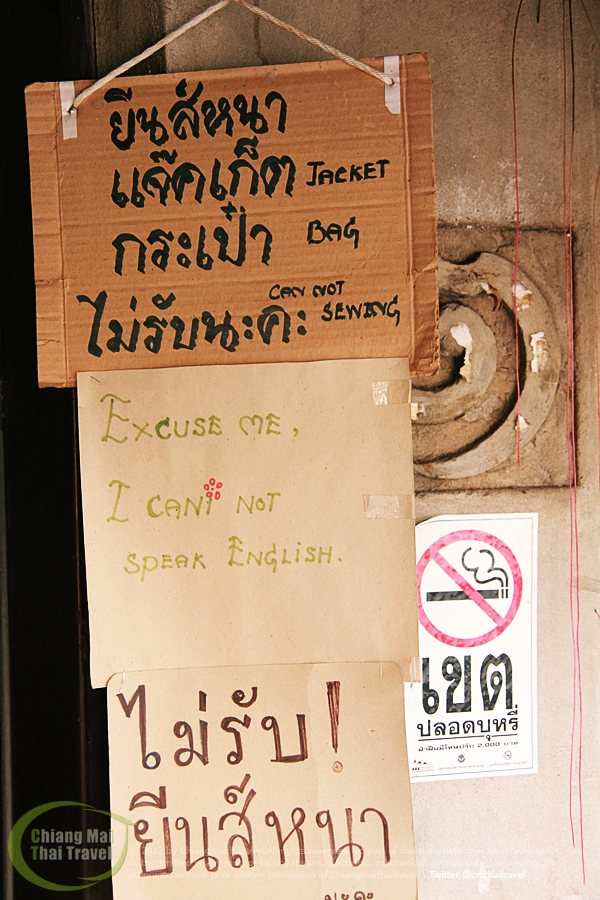 ยีนส์หนา
แจ๊คเก็ต JACKET
กระเป๋า BAG
ไม่รับนะคะ CAN NOT SEWING
EXCUSE ME,
I CANT NOT
SPEAK ENGLISH.
ไม่รับ!
ยีนส์หนา
นะคะ
เขต
ปลอดบุหรี่
ฝ่าฝืนมีโทษปรับ 2,000 บาท
Chiang Mai
Thai Travel
Twitter @cmthaitravel